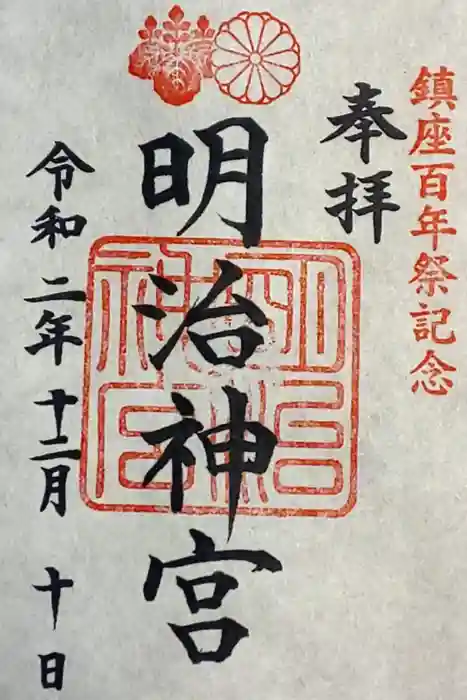 鎮座百年祭記念
奉拝
明治神宮
令和二年十二月十日
明治神宮